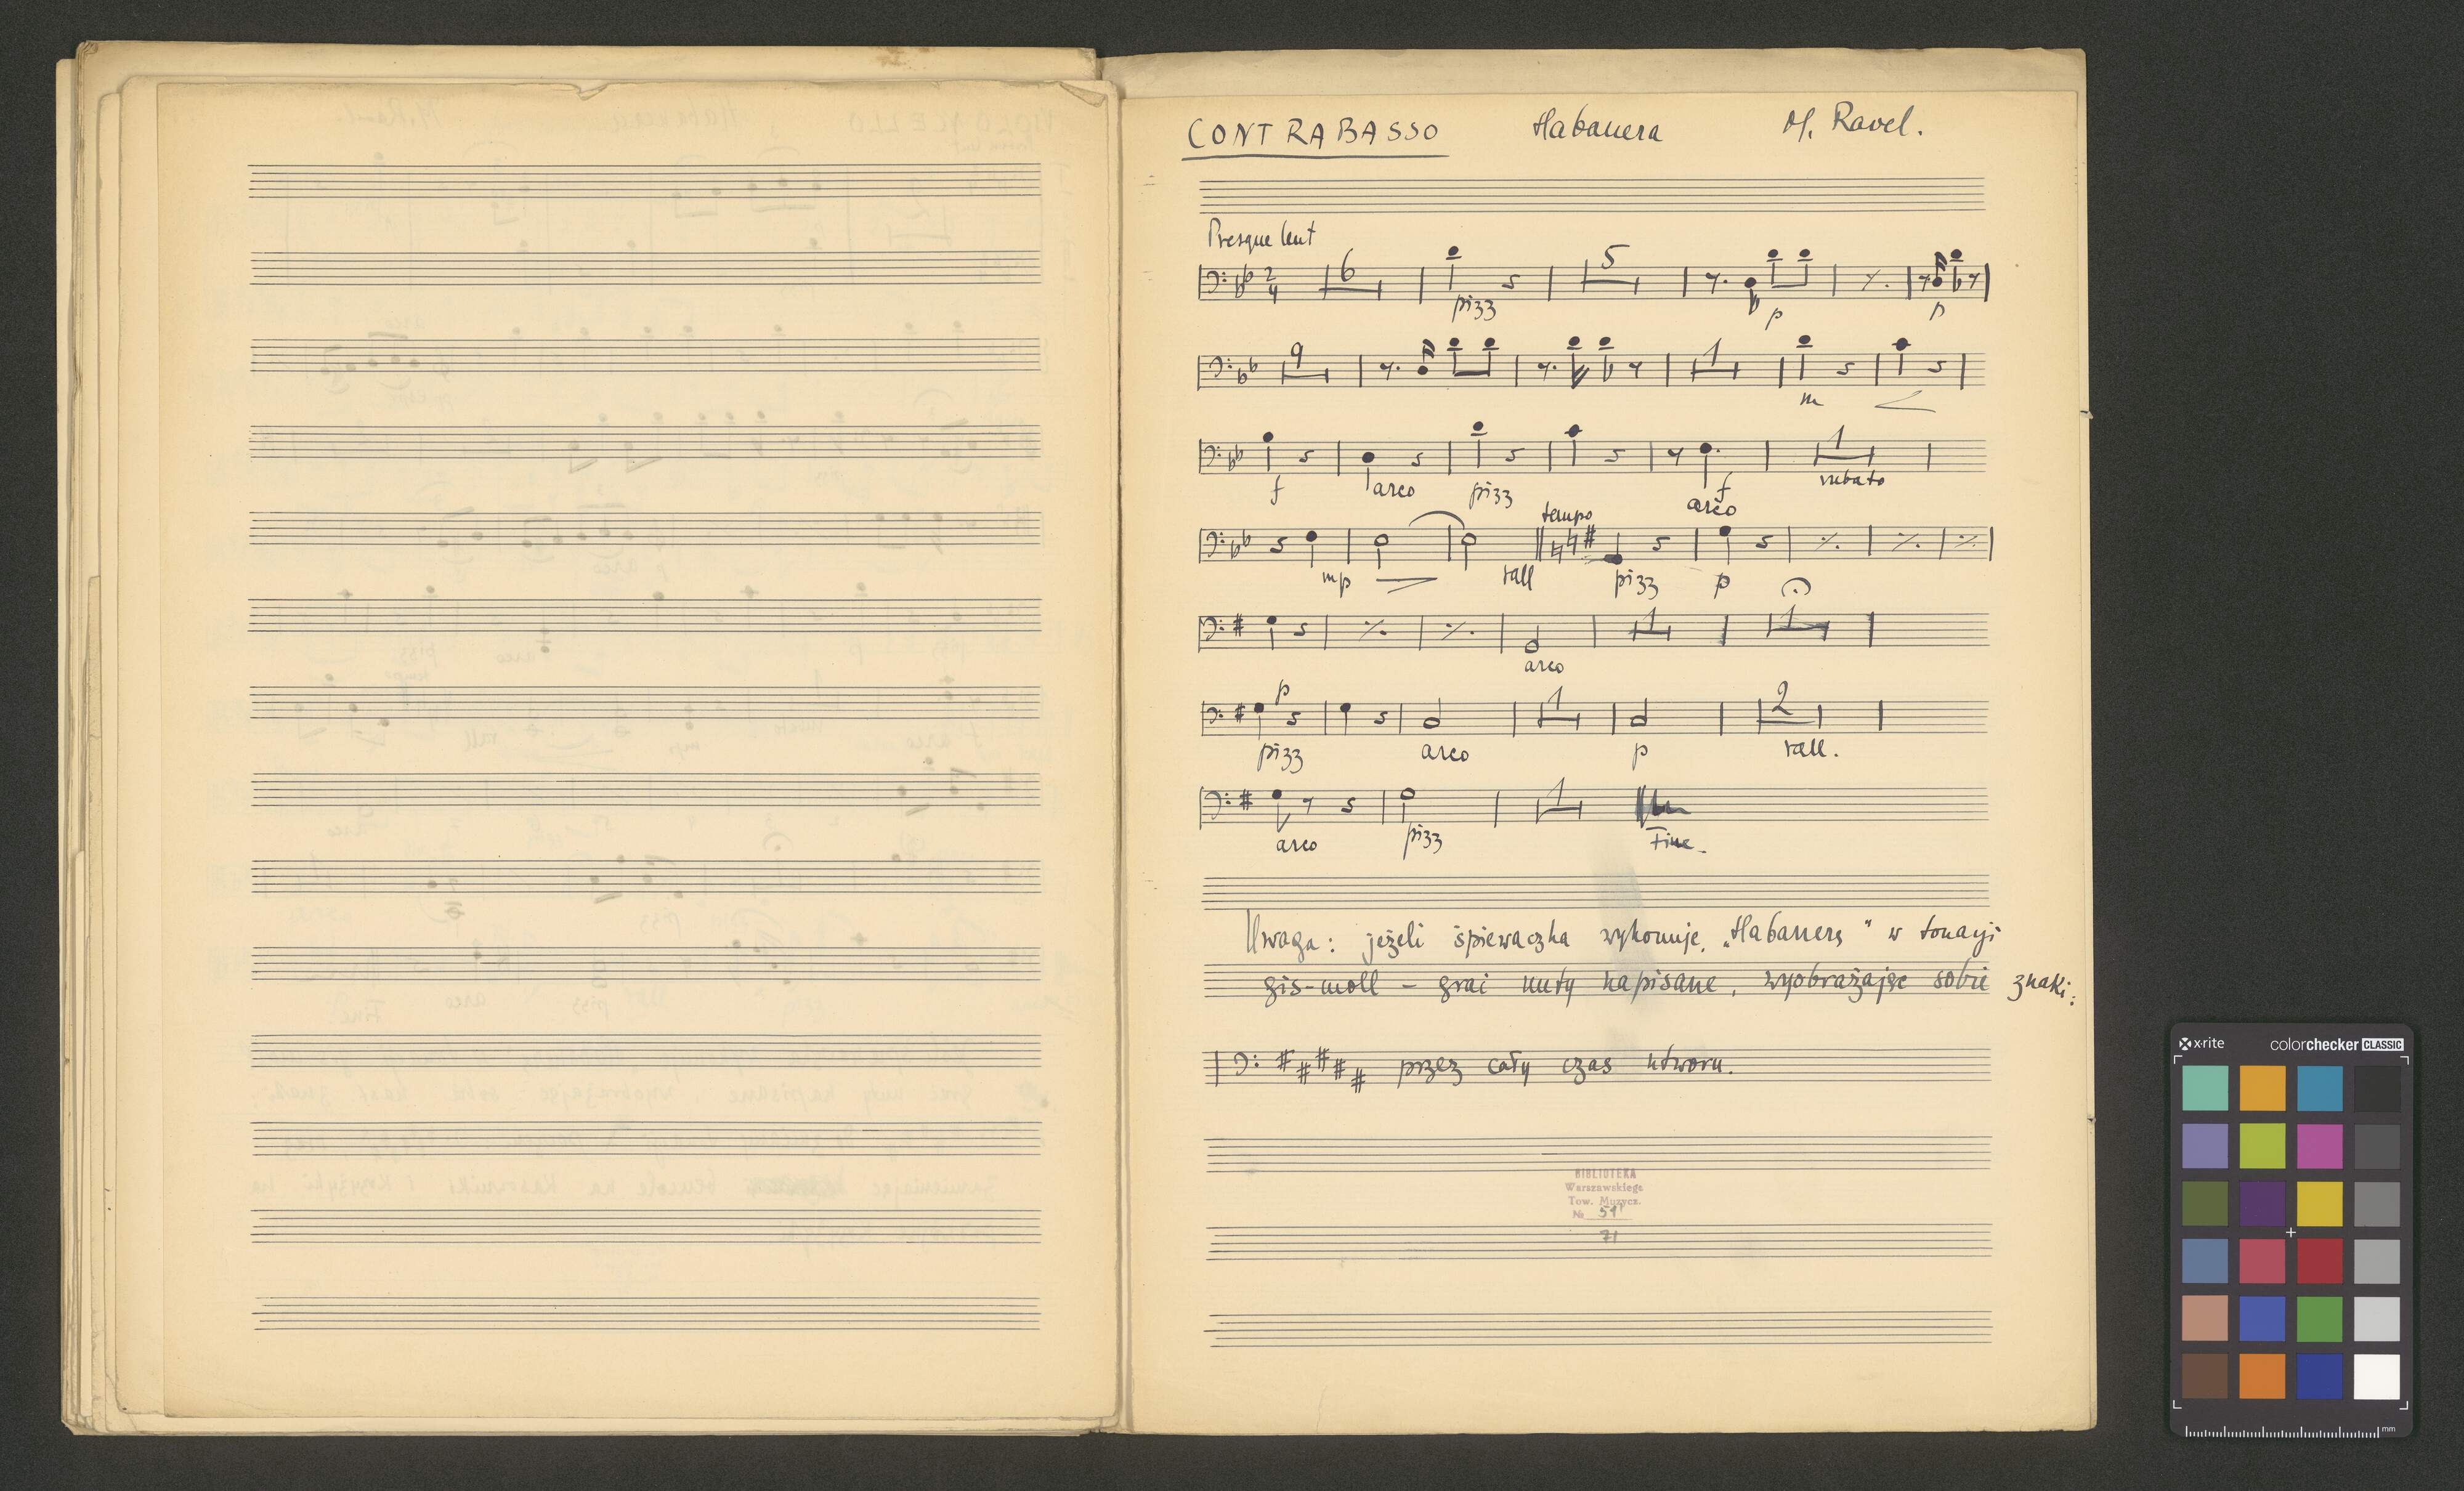 CONTRABASSO Habanera M. Ravel.
Presque lent
2 4 6 5
pizz p p
9 1
m
1
f arco pizz f rubato
arco
tempo
mp rall pizz p
1 1
arco
p 1 2
pizz arco p rall.
1
arco pizz Fine.
Uwaga: jeżeli śpiewaczka wykonuje „Habanerę" w tonacji
gis-moll – grać nuty napisane, wyobrażając sobie znaki:
przez cały czas utworu.
BIBLIOTEKA
Warszawskiego
Tow. Muzycz.
№ 51
71
x-rite colorchecker CLASSIC
mm